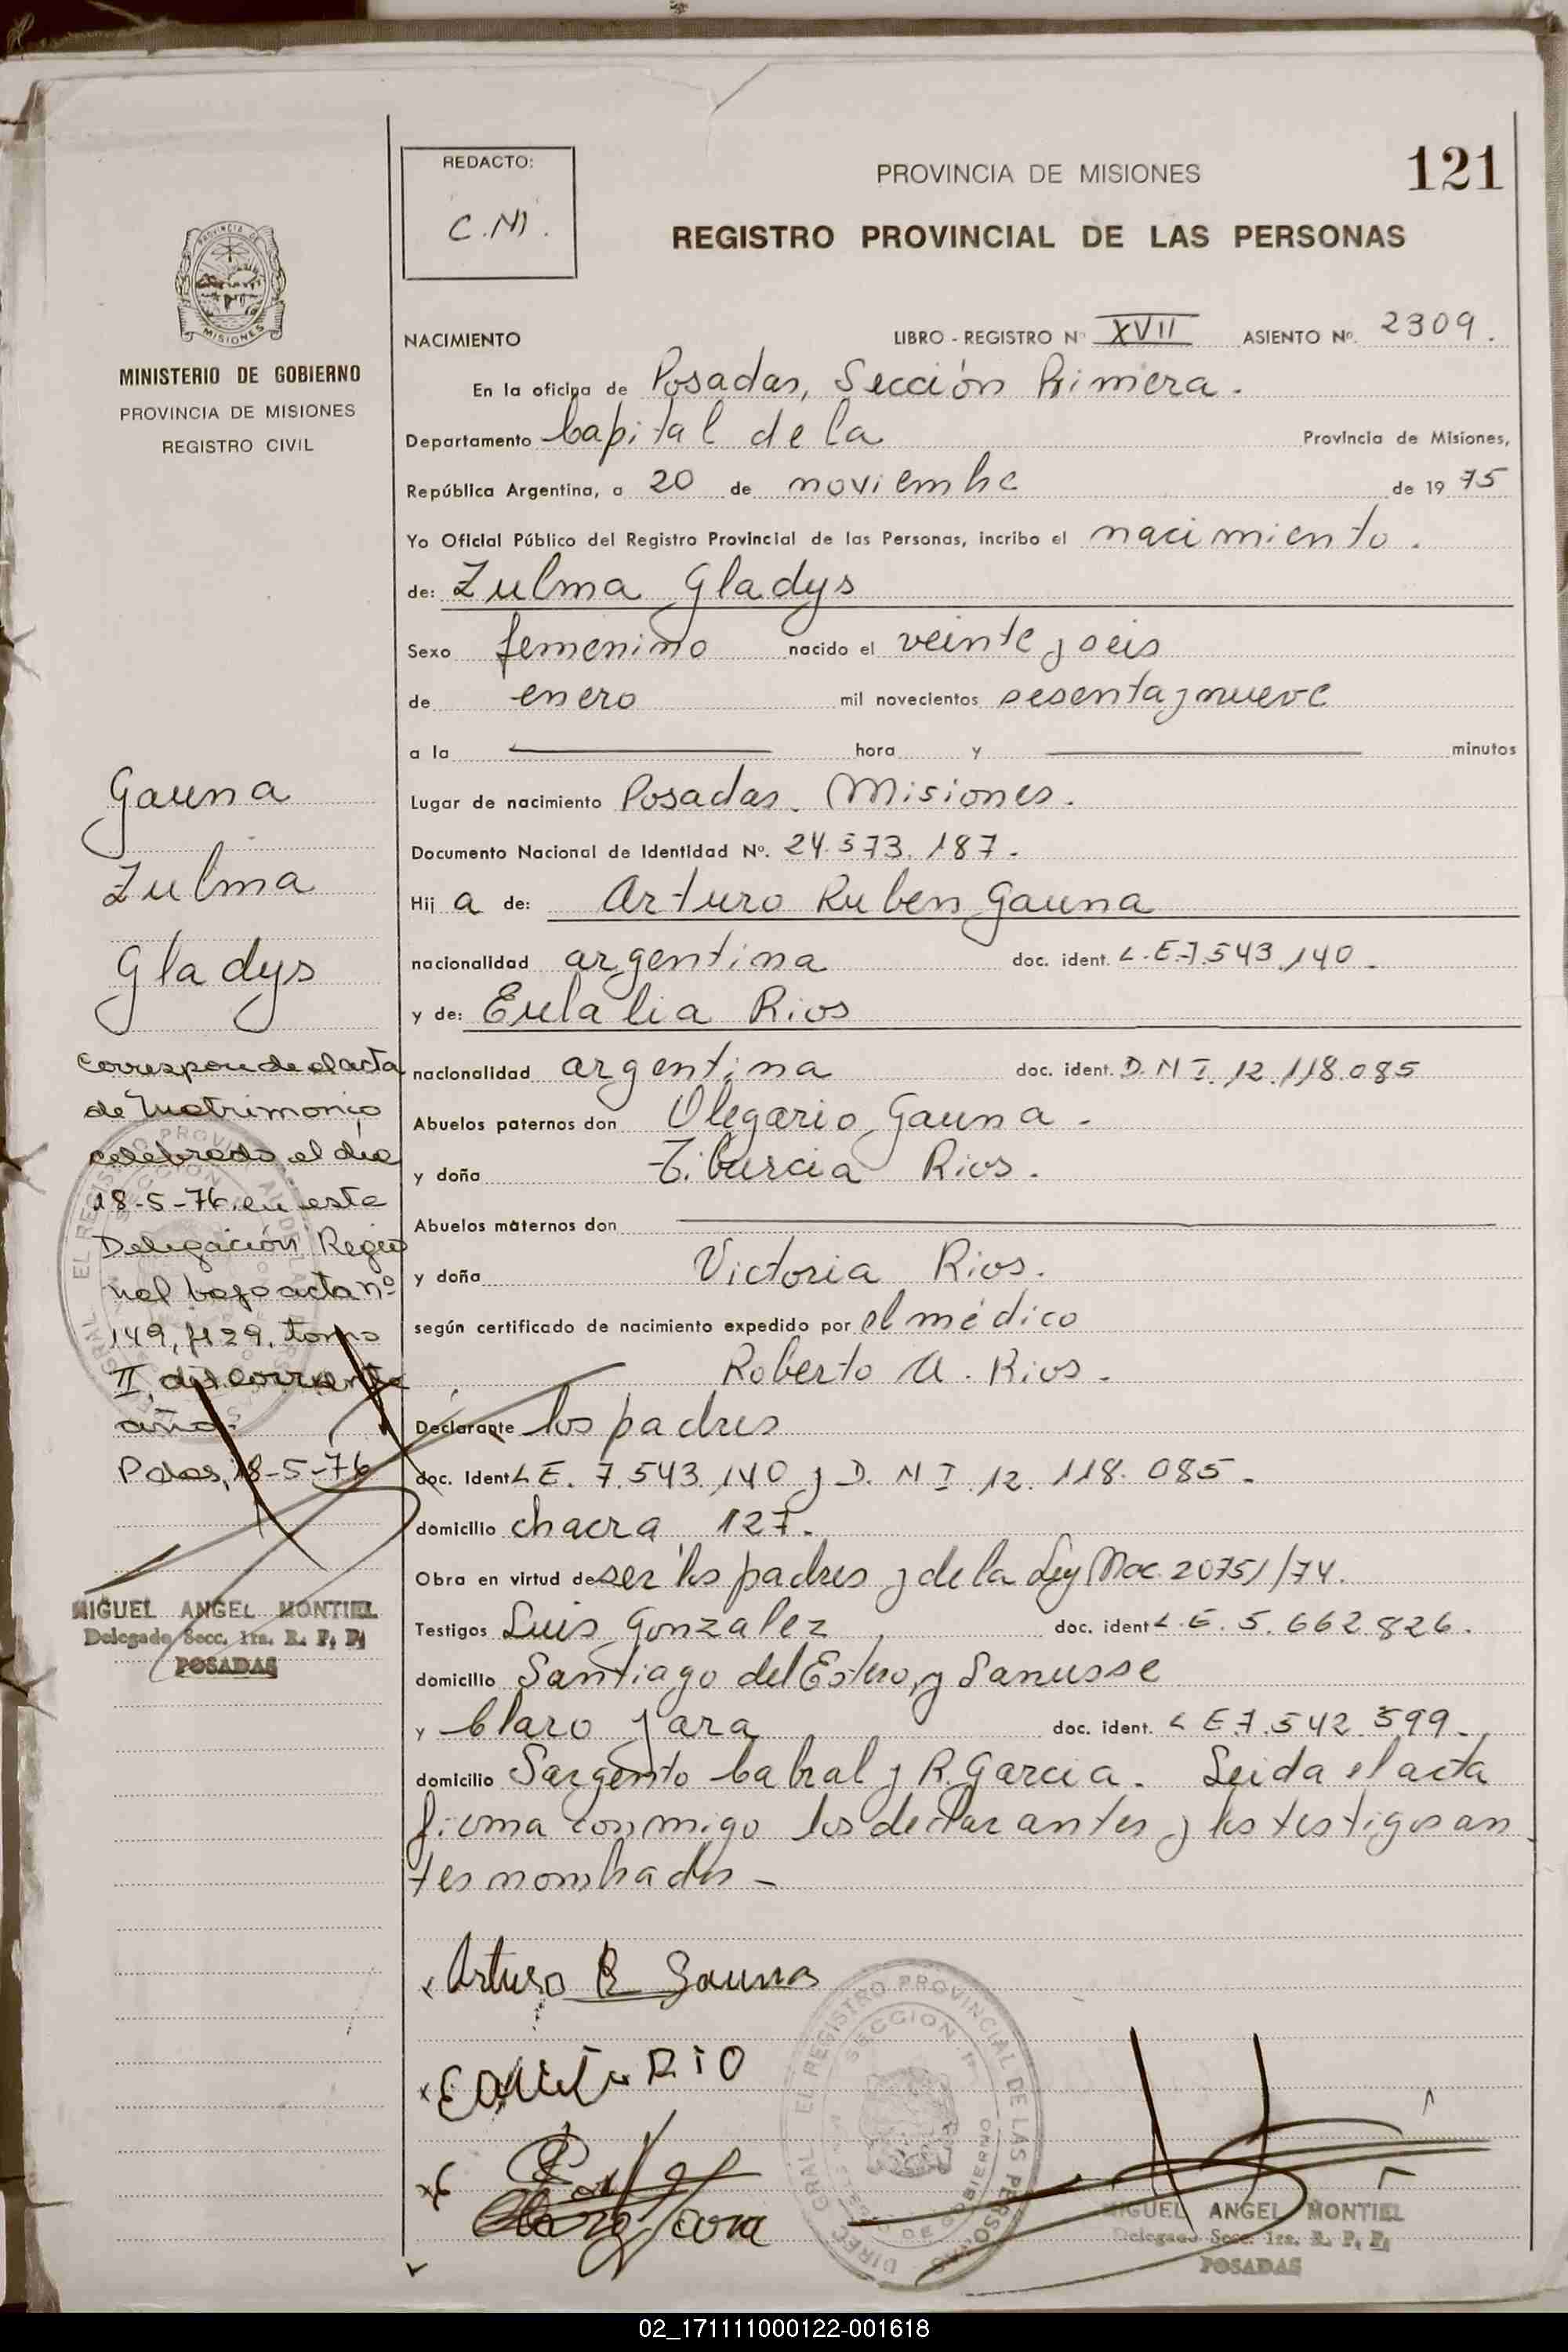 121
REDACTO:
C.M.
PROVINCIA DE MISIONES
REGISTRO PROVINCIAL DE LAS PERSONAS
PROVINCIA DE
MISIONES
MINISTERIO DE GOBIERNO
PROVINCIA DE MISIONES
REGISTRO CIVIL
NACIMIENTO LIBRO - REGISTRO Nº XVII ASIENTO Nº. 2309.
En la oficina de Posadas, Sección Primera.
Departamento Capital de la Provincia de Misiones,
República Argentina, a 20 de noviembre de 19 75
Yo Oficial Público del Registro Provincial de las Personas, incribo el nacimiento.
de: Zulma Gladys
Sexo femenino nacido el veinte y seis
de enero mil novecientos sesenta y nueve
a la hora y minutos
Lugar de nacimiento Posadas. Misiones.
Documento Nacional de Identidad Nº. 24.573.187.
Hij a de: Arturo Ruben Gauna
nacionalidad argentina doc. ident. L.E.7.543.140.
y de: Eulalia Rios
nacionalidad argentina doc. ident. D.N I. 12.118.085
Abuelos paternos don Olegario Gauna.
y doña Tiburcia Rios.
Abuelos maternos don
y doña Victoria Rios.
según certificado de nacimiento expedido por el médico
Roberto A. Rios.
Declarante los padres
doc. Ident L E. 7.543.140 y D. N I. 12. 118. 085.
domicilio chacra 127.
Obra en virtud de ser los padres y de la Ley Nac. 20751/74.
Testigos Luis Gonzalez doc. ident L.E. 5.662.826.
domicilio Santiago del Estero, y Lanusse
y Claro Jara doc. ident. L E 7.542.599.
domicilio Sargento Cabral y R. Garcia. Leida el acta
firma conmigo los declarantes y los testigos an
tes nombrados -
Gauna
Zulma
Gladys
Corresponde el acta
de Matrimonio
celebrado el día
18-5-76 en esta
Delegación Regio
nal bajo acta nº
149, fº 29, tomo
II, del corriente
año.
Pdas, 18-5-76
MIGUEL ANGEL MONTIEL
Delegado Secc. 1ra. R. P. P.
POSADAS
Arturo R Gauna
RIO
Jara
DIREC. GRAL. EL REGISTRO PROVINCIAL DE LAS PERSONAS
SECCION 1ª
MIGUEL ANGEL MONTIEL
Delegado Secc. 1ra. R. P. P.
POSADAS
02_171111000122-001618